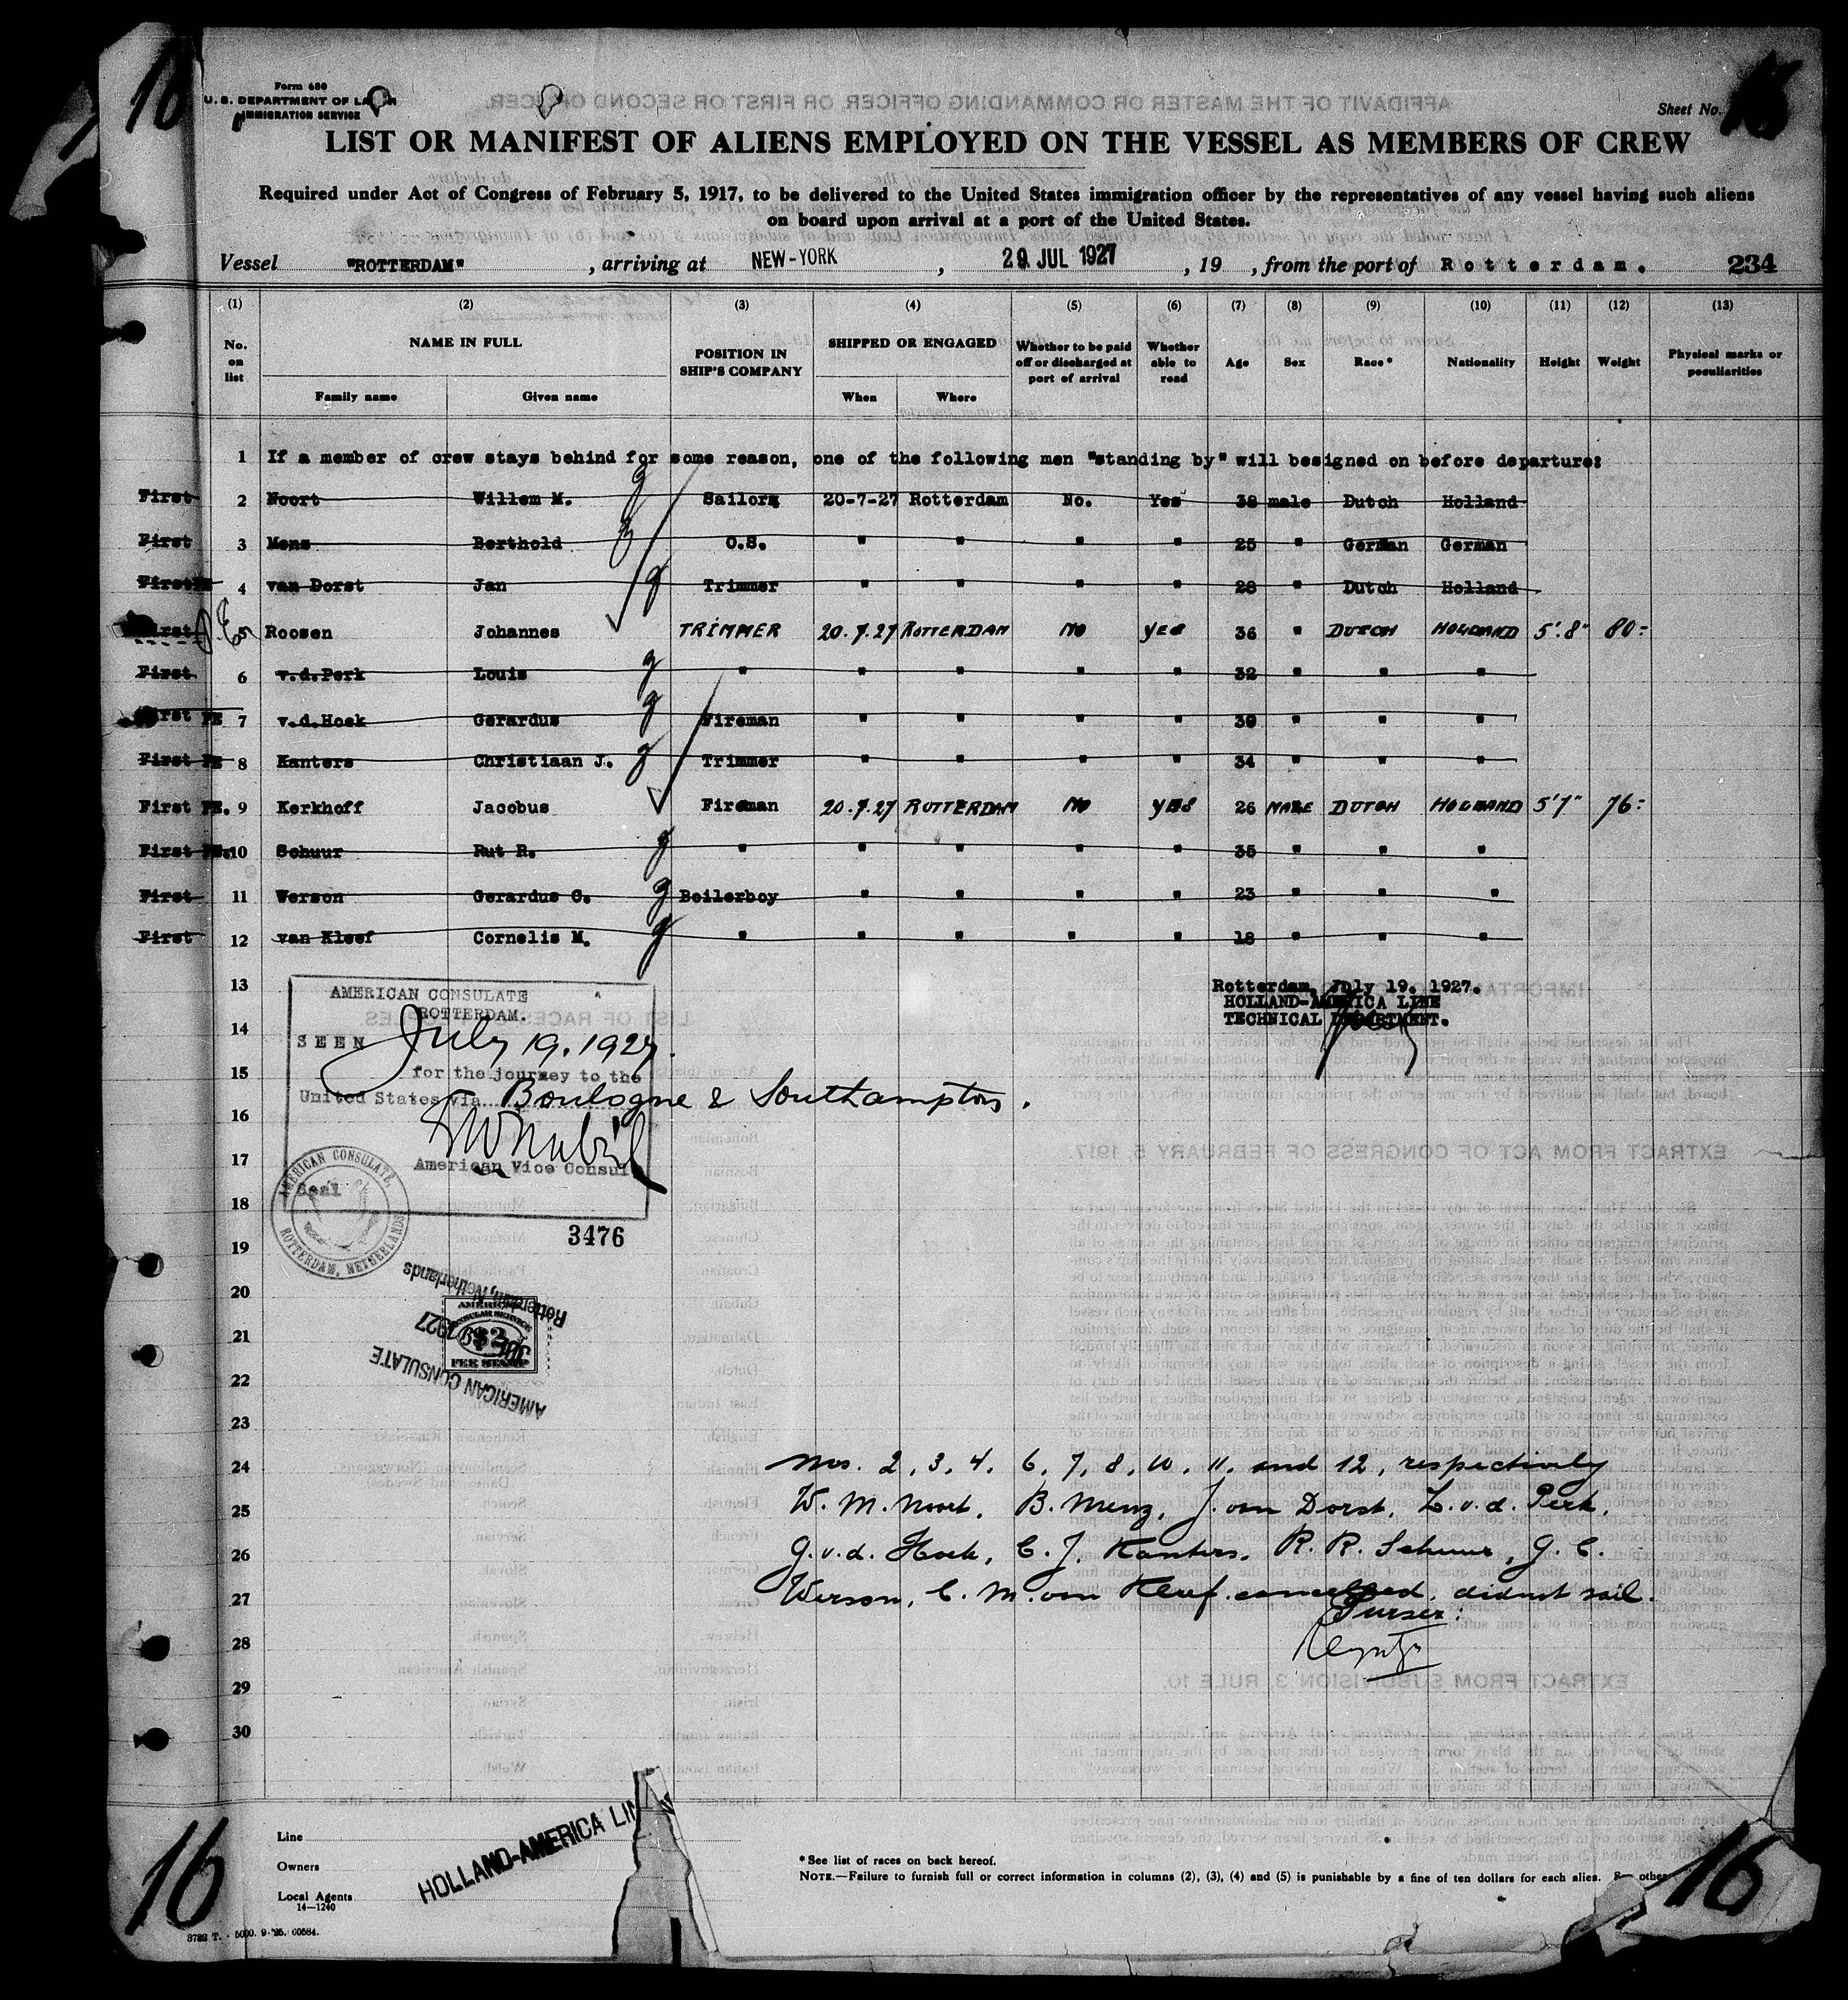 16
Form 680
U. S. DEPARTMENT OF LABOR
IMMIGRATION SERVICE
Sheet No. 16
LIST OR MANIFEST OF ALIENS EMPLOYED ON THE VESSEL AS MEMBERS OF CREW
Required under Act of Congress of February 5, 1917, to be delivered to the United States immigration officer by the representatives of any vessel having such aliens
on board upon arrival at a port of the United States.
Vessel "ROTTERDAM", arriving at NEW-YORK, 29 JUL 1927, 19 , from the port of Rotterdam. 234
(1) (2) (3) (4) (5) (6) (7) (8) (9) (10) (11) (12) (13)
No. on list NAME IN FULL POSITION IN SHIP'S COMPANY SHIPPED OR ENGAGED Whether to be paid off or discharged at port of arrival Whether able to read Age Sex Race* Nationality Height Weight Physical marks or peculiarities
Family name Given name When Where
1 If a member of crew stays behind for some reason, one of the following men "standing by" will besigned on before departure:
First 2 Noort Willem M. Sailor 20-7-27 Rotterdam No. Yes 38 male Dutch Holland
First 3 Menz Berthold O.S. " " " " 25 " German German
First 4 van Dorst Jan Trimmer " " " " 28 " Dutch Holland
First 5 Roosen Johannes TRIMMER 20.7.27 ROTTERDAM NO YES 36 " DUTCH HOLLAND 5'.8" 80-
First 6 v.d.Perk Louis " " " " " 32 " " "
First FE 7 v.d.Hoek Gerardus Fireman " " " " 30 " " "
First FE 8 Kanters Christiaan J. Trimmer " " " " 34 " " "
First FE. 9 Kerkhoff Jacobus Fireman 20.7.27 ROTTERDAM NO YES 26 MALE DUTCH HOLLAND 5'7" 76-
First FE. 10 Schuur Rut R. " " " " " 35 " " "
First 11 Werson Gerardus C. Boilerboy " " " " 23 " " "
First 12 van Kleef Cornelis M. " " " " " 18 " " "
13
14
15
16
17
18
19
20
21
22
23
24
25
26
27
28
29
30
Rotterdam, July 19. 1927.
HOLLAND-AMERICA LINE
TECHNICAL DEPARTMENT.
AMERICAN CONSULATE
ROTTERDAM.
SEEN July 19, 1927.
for the journey to the
United States via Boulogne & Southampton.
American Vice Consul
Seal
AMERICAN CONSULATE, ROTTERDAM, NETHERLANDS
3476
Rotterdam, Netherlands
AMERICAN
CONSULAR SERVICE
$2
FEE STAMP
1927
AMERICAN CONSULATE
Nos. 2, 3, 4, 6, 7, 8, 10, 11, and 12, respectively
W. M. Noort, B. Menz, J. van Dorst, L. v. d. Perk,
G. v. d. Hoek, C. J. Kanters, R. R. Schuur, G. C.
Werson, C. M. van Kleef. cancelled, didnot sail.
Purser:
Line
Owners
Local Agents
14—1240
HOLLAND-AMERICA LINE
* See list of races on back hereof.
NOTE.—Failure to furnish full or correct information in columns (2), (3), (4) and (5) is punishable by a fine of ten dollars for each alien. See other
3782 T. - 5000. 9-'25. 60584.
16
16